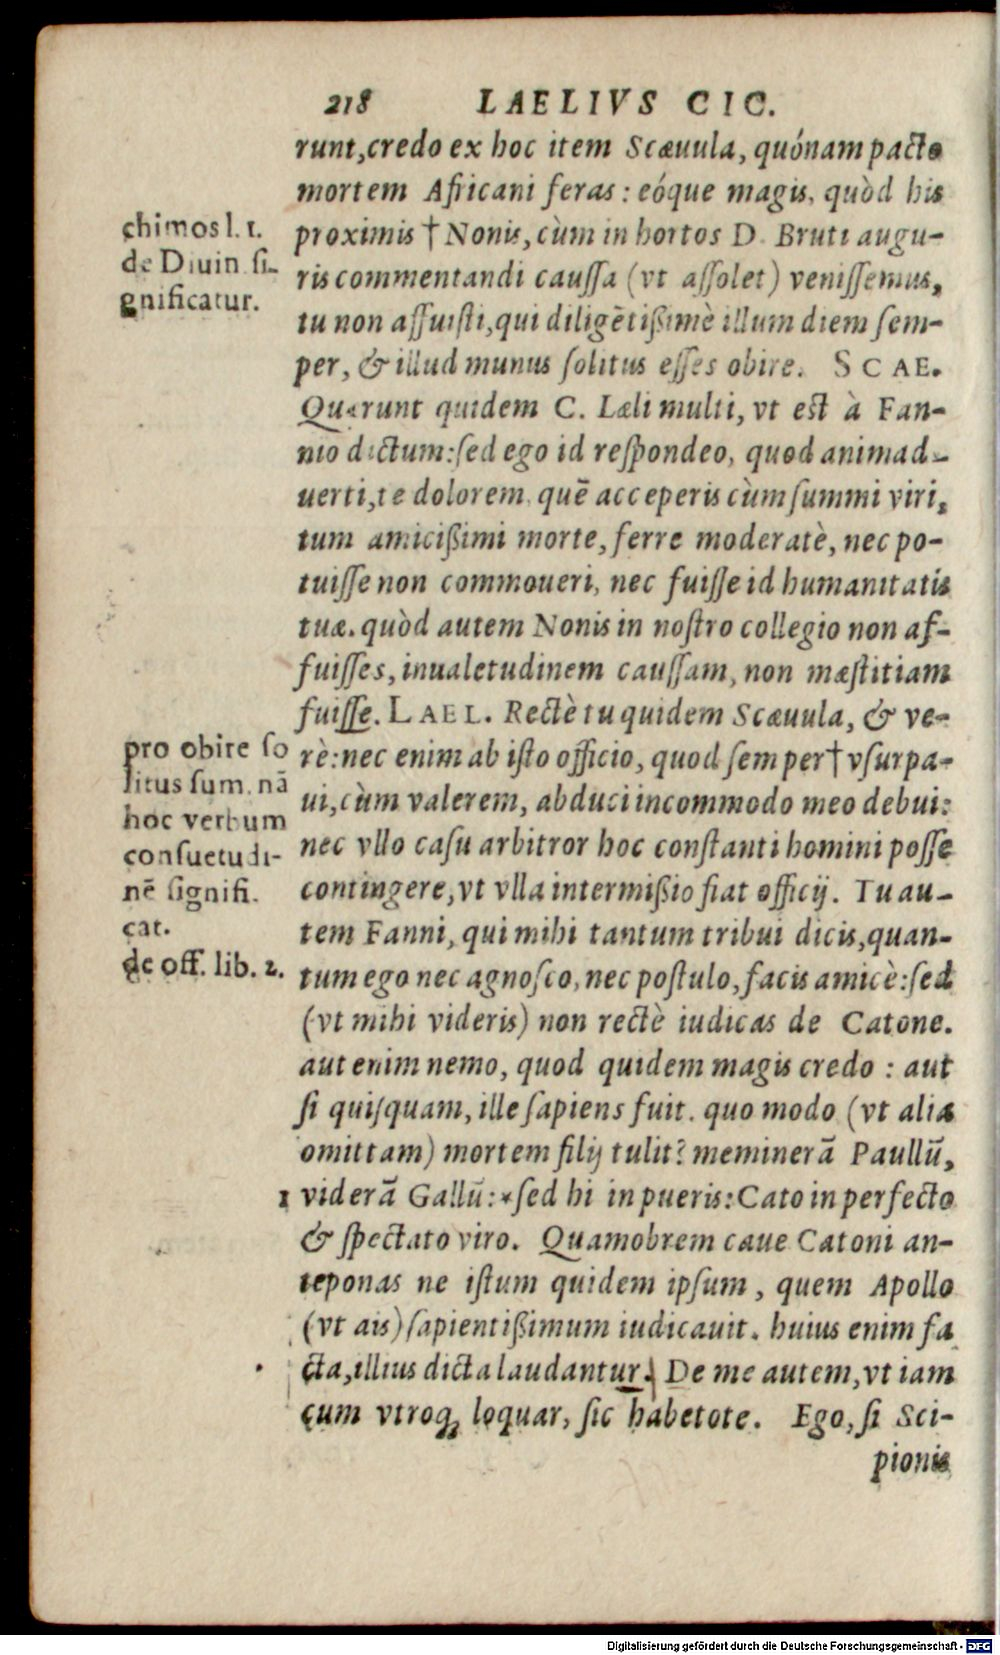 218 LAELIVS CIC.
runt, credo ex hoc item Scæuula, quónam pacto
mortem Africani feras: eóque magis, quòd his
proximis † Nonis, cùm in hortos D. Bruti augu-
ris commentandi caussa (vt assolet) venissemus,
tu non affuisti, qui diligētißimè illum diem sem-
per, & illud munus solitus esses obire. SCAE.
Quærunt quidem C. Læli multi, vt est à Fan-
nio dictum: sed ego id respondeo, quod animad-
uerti, te dolorem, quē acceperis cùm summi viri,
tum amicißimi morte, ferre moderatè, nec po-
tuisse non commoueri, nec fuisse id humanitatis
tuæ. quòd autem Nonis in nostro collegio non af-
fuisses, inualetudinem caussam, non mæstitiam
fuisse. LAEL. Rectè tu quidem Scæuula, & ve-
rè: nec enim ab isto officio, quod semper † vsurpa-
ui, cùm valerem, abduci incommodo meo debui:
nec vllo casu arbitror hoc constanti homini posse
contingere, vt vlla intermißio fiat officij. Tu au-
tem Fanni, qui mihi tantum tribui dicis, quan-
tum ego nec agnosco, nec postulo, facis amicè: sed
(vt mihi videris) non rectè iudicas de Catone.
aut enim nemo, quod quidem magis credo : aut
si quisquam, ille sapiens fuit. quo modo (vt alia
omittam) mortem filij tulit? meminerā Paullū,
1 viderā Gallū: * sed hi in pueris: Cato in perfecto
& spectato viro. Quamobrem caue Catoni an-
teponas ne istum quidem ipsum, quem Apollo
(vt ais) sapientißimum iudicauit. huius enim fa
cta, illius dicta laudantur. De me autem, vt iam
cum vtroq; loquar, sic habetote. Ego, si Sci-
pionis
chimos l. 1.
de Diuin si-
gnificatur.
pro obire so
litus sum. nā
hoc verbum
consuetudi-
nē signifi.
cat.
de off. lib. 2.
Digitalisierung gefördert durch die Deutsche Forschungsgemeinschaft - DFG